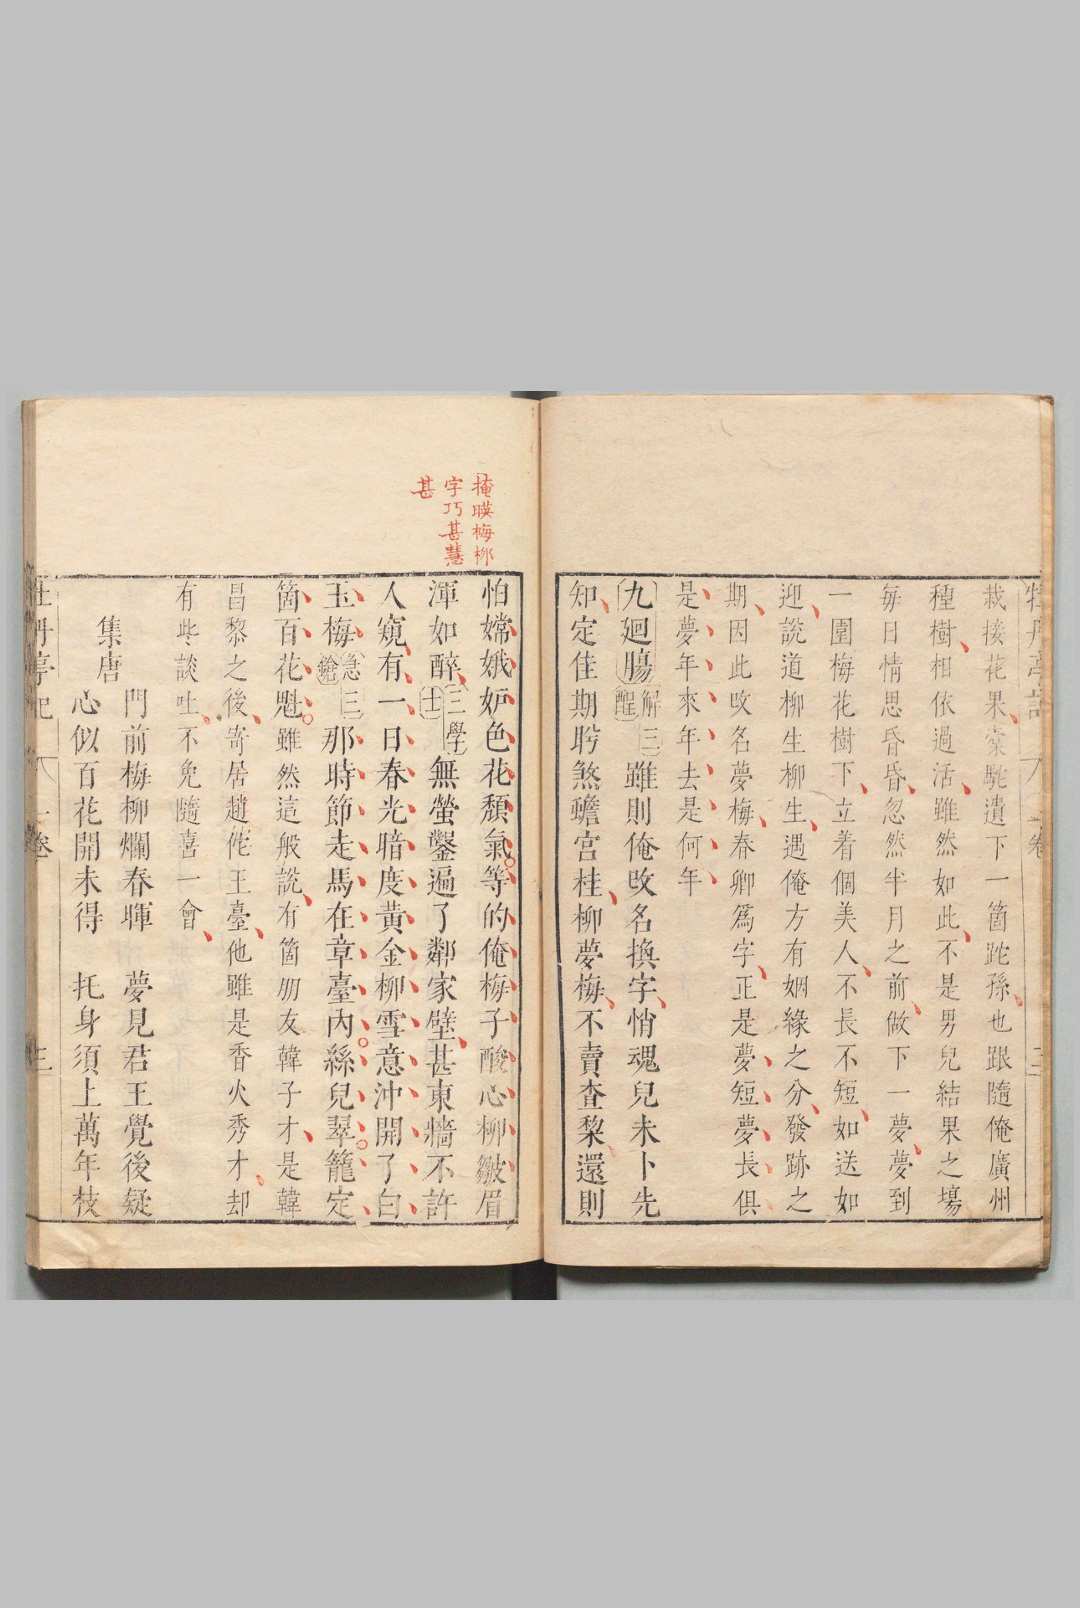 牡丹亭記 一卷 二
栽接花果橐駝遺下一箇跎孫也跟隨俺廣州
種樹相依過活雖然如此不是男兒結果之塲
每日情思昏昏忽然半月之前做下一夢夢到
一園梅花樹下立着個美人不長不短如送如
迎說道柳生柳生遇俺方有姻緣之分發跡之
期因此改名夢梅春卿爲字正是夢短夢長俱
是夢年來年去是何年
九廻腸解三酲雖則俺改名換字悄魂兒未卜先
知定佳期盻煞蟾宮桂柳夢梅不賣査棃還則
掩映梅柳
字巧甚慧
甚
怕嫦娥妒色花頹氣等的俺梅子酸心柳皺眉
渾如醉三學士無螢鑿遍了鄰家壁甚東牆不許
人窺有一日春光暗度黃金柳雪意沖開了白
玉梅急三鎗那時節走馬在章臺內絲兒翠籠定
箇百花魁雖然這般說有箇朋友韓子才是韓
昌黎之後寄居趙佗王臺他雖是香火秀才却
有些談吐不免隨喜一會
集唐
門前梅柳爛春暉 夢見君王覺後疑
心似百花開未得 托身須上萬年枝
牡丹亭記 一卷 三